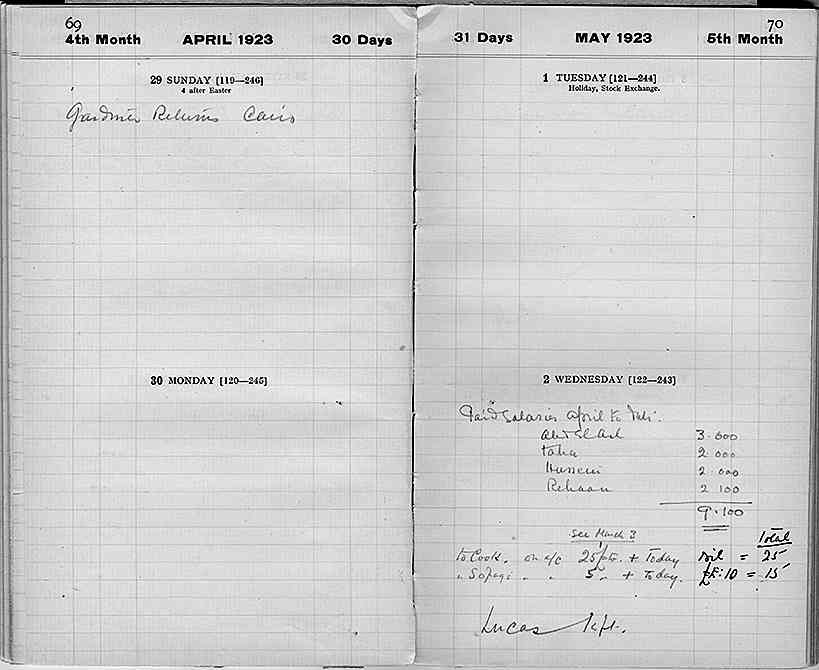 69
4th Month APRIL 1923 30 Days
29 SUNDAY [119—246]
4 after Easter
Gardiner Returns Cairo
30 MONDAY [120—245]
70
31 Days MAY 1923 5th Month
1 TUESDAY [121—244]
Holiday, Stock Exchange.
2 WEDNESDAY [122—243]
Paid Salaries April to
Abd el Aal 3.000
Taha 2.000
Hussein 2.000
Rehaan 2 100
9.100
See March 3
Total
to Cook. on a/c 25 ptr. + Today nil = 25
" Sofragi " " 5 " + Today. 10 = 15
Lucas left.